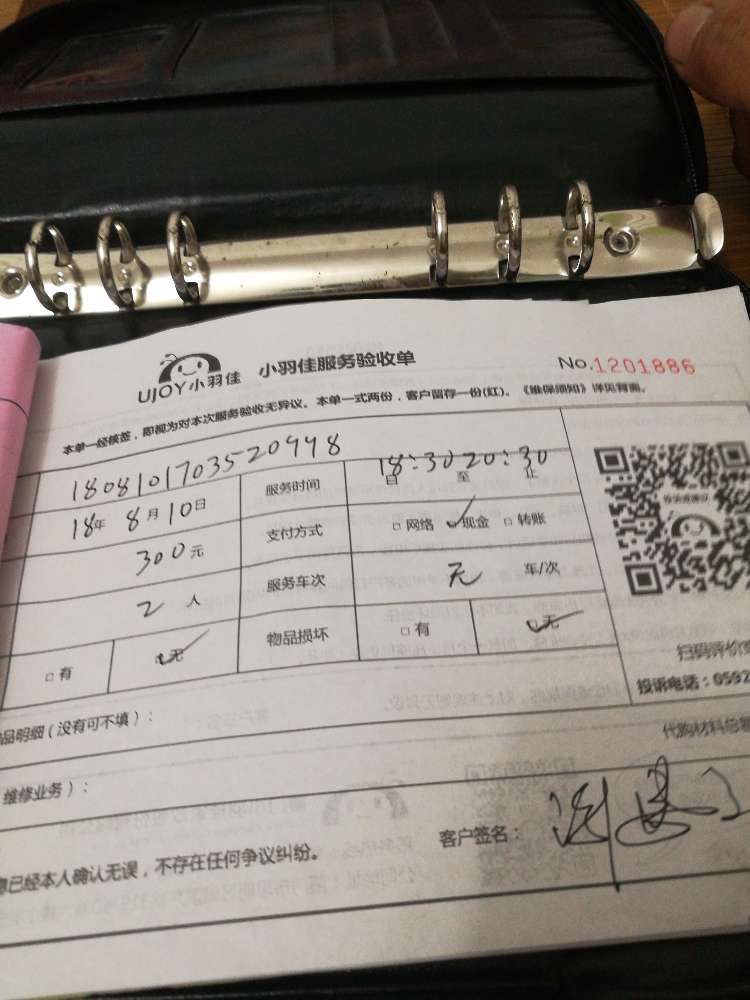 UJOY小羽佳 小羽佳服务验收单 No.1201886
本单一经核签，即视为对本次服务验收无异议。本单一式两份，客户留存一份(红)。《维保须知》详见背面。
180810170352099​8 服务时间 18:30 20:30 自 至 止
18年 8月10日 支付方式 □网络 ☑现金 □转账
300元 服务车次 无 车/次
2人 物品损坏 □有 ☑无
□有 ☑无
扫码评价
投诉电话：0592
品明细（没有可不填）：
代购材料总额
维修业务）：
息已经本人确认无误，不存在任何争议纠纷。 客户签名：